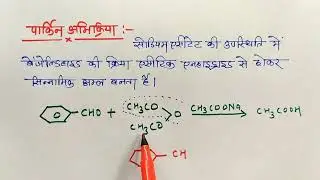 पार्किन अभिक्रिया :-
सोडियम एसीटेट की उपस्थिति में
बेंजेल्डिहाइड की क्रिया एसीटिक एनहाइड्राइड से होकर
सिन्नामिक अम्ल बनता है।
CHO + CH₃CO O CH₃COONa CH₃COOH
CH₃CO
CH